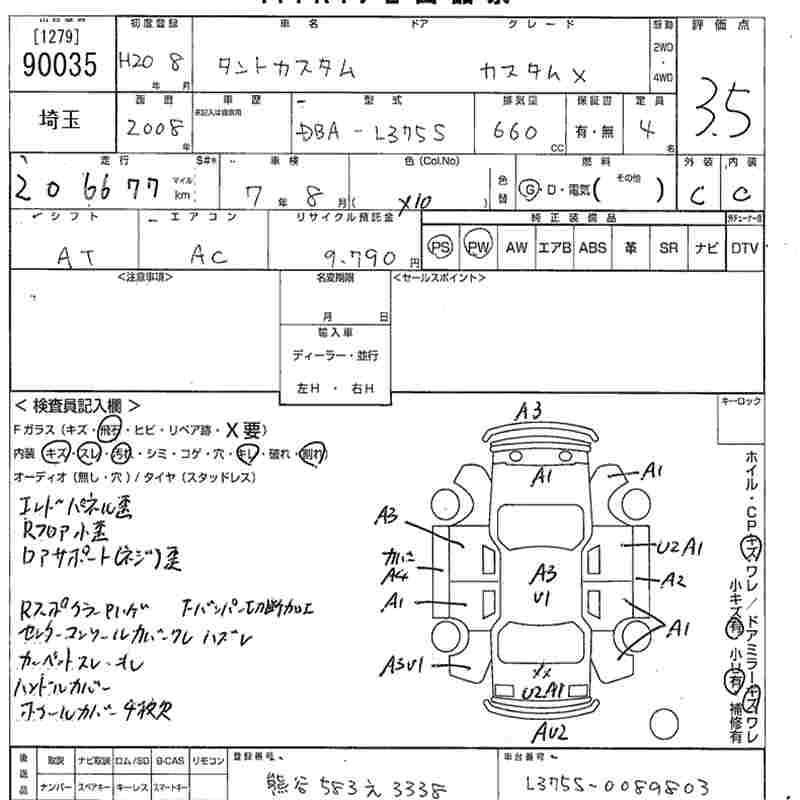 [1279] 初度登録 車名 ドア グレード 駆動 評価点
90035 H20 8 年 月 タントカスタム カスタムX 2WD・4WD 3.5
埼玉 西暦 車歴 型式 排気量 保証書 定員
2008 年 DBA-L375S 660 CC 有・無 4 名
走行 S#* 車検 色(Col.No) 燃料 外装 内装
206677 マイル km 7 年 8 月 ( X10 ) 色替 G・D・電気( その他 ) C C
シフト エアコン リサイクル預託金 純正装備品
AT AC 9.790 円 PS PW AW エアB ABS 革 SR ナビ DTV
<注意事項> 名変期限 <セールスポイント>
月 日
輸入車
ディーラー・並行
左H ・ 右H
<検査員記入欄> キーロック
Fガラス(キズ・飛石・ヒビ・リペア跡・X要)
内装 キズ・スレ・汚れ・シミ・コゲ・穴・キレ・破れ・割れ
オーディオ(無し・穴)/タイヤ(スタッドレス)
エンドパネル歪
Rフロア小歪
ロアサポート(ネジ)歪
Fバンパー切断加工
カーペットスレ・
ハンドルカバー
ホイールカバー4枚欠
A3
A1
A1
A3
U2A1
A4
A3
U1
A2
A1
A1
A3U1
U2A1
AU2
ホイル・CPキズワレ/ドアミラーキズワレ
小キズ有 小U有 補修有
後返品 取説 ナビ取説 ロム/SD B-CAS リモコン 登録番号 車台番号
ナンバー スペアキー キーレス スマートキー 熊谷 583 え 3338 L375S-0089803